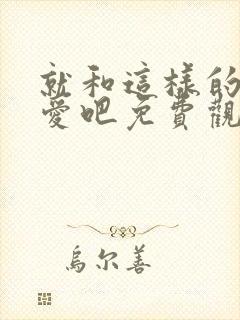 就和這樣的
愛吧免費觀
烏尔善